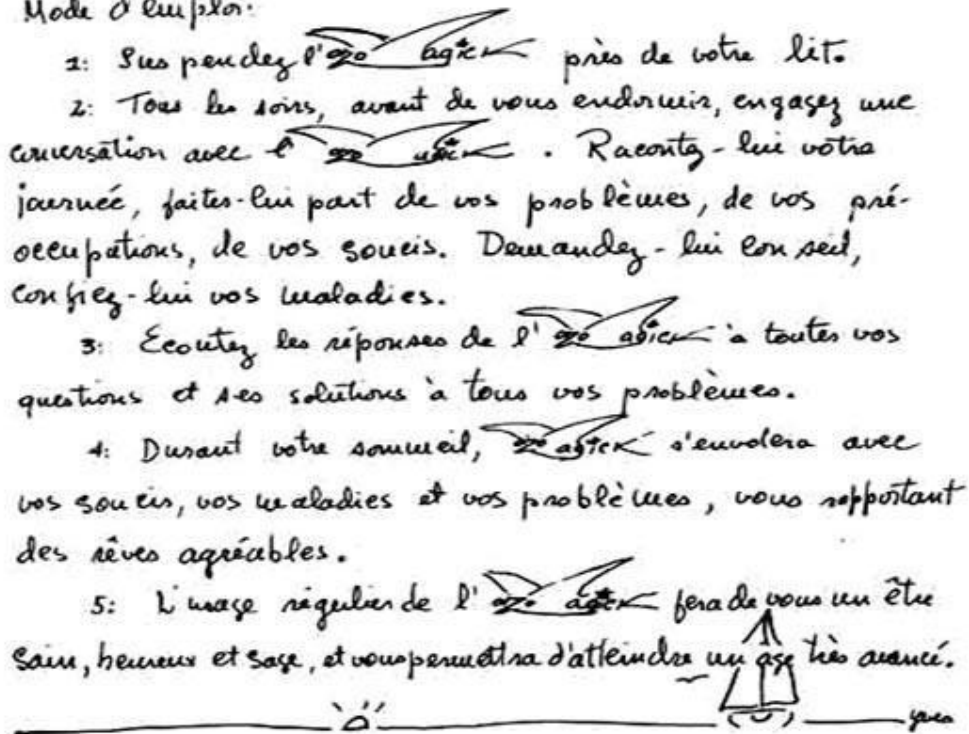 Mode d'emploi:
1: Suspendez l'ozo agick près de votre lit.
2: Tous les soirs, avant de vous endormir, engagez une
conversation avec l'ozo agick. Racontez-lui votre
journée, faites-lui part de vos problèmes, de vos pré-
occupations, de vos soucis. Demandez-lui conseil,
confiez-lui vos maladies.
3: Ecoutez les réponses de l'ozo agick à toutes vos
questions et ses solutions à tous vos problèmes.
4: Durant votre sommeil, ozo agick s'envolera avec
vos soucis, vos maladies et vos problèmes, vous rapportant
des rêves agréables.
5: L'usage régulier de l'ozo agick fera de vous un être
sain, heureux et sage, et vous permettra d'atteindre un âge très avancé.